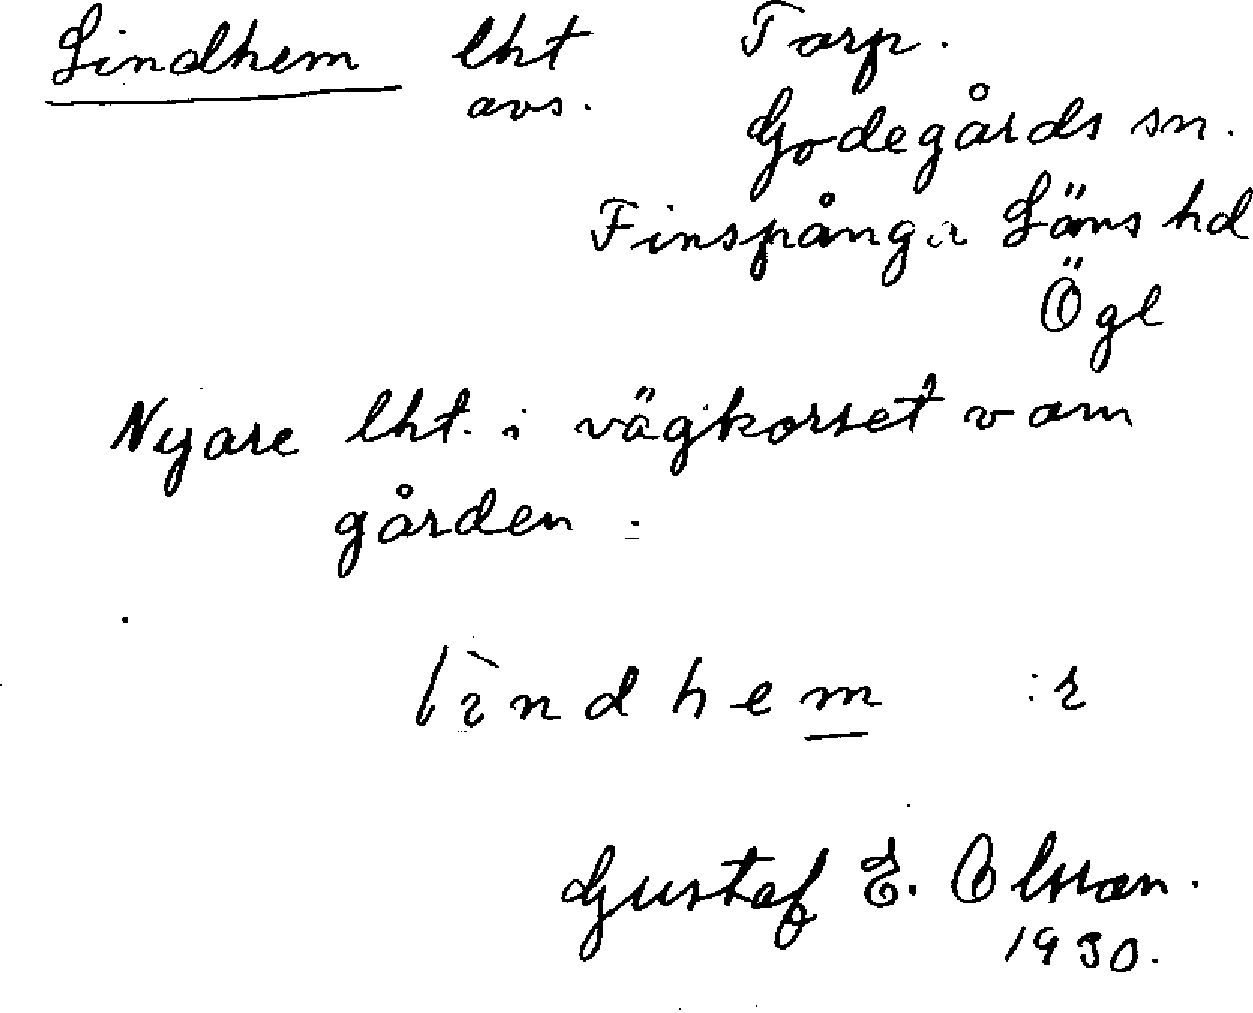 Lindhem lht Torp.
avs. Godegårds sn.
Finspånga Läns hd
Ögl
Nyare lht. i vägkorset v om
gården.
lìndhem :r
Gustaf E. Olsson.
1930.